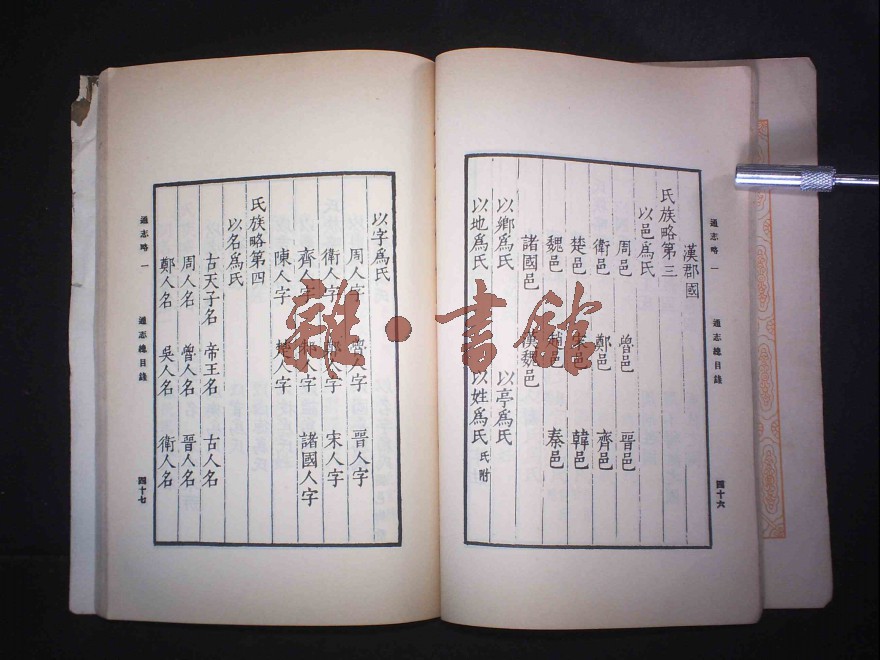 通志略 一 通志總目錄 四十六
漢郡國
氏族略第三
以邑爲氏
周邑 魯邑 晉邑
衛邑 鄭邑 齊邑
楚邑 宋邑 韓邑
魏邑 趙邑 秦邑
諸國邑 漢魏邑
以鄉爲氏 以亭爲氏
以地爲氏 以姓爲氏 氏附
以字爲氏
周人字 魯人字 晉人字
衛人字 鄭人字 宋人字
齊人字 人字 諸國人字
陳人字 楚人字
氏族略第四
以名爲氏
古天子名 帝王名 古人名
周人名 魯人名 晉人名
鄭人名 吳人名 衛人名
通志略 一 通志總目錄 四十七
雜·書館